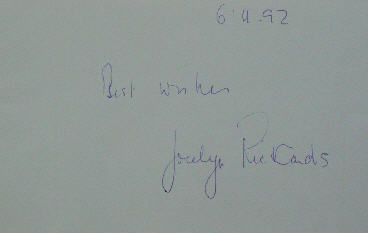 6.11.92
Best wishes
Jocelyn Rickards